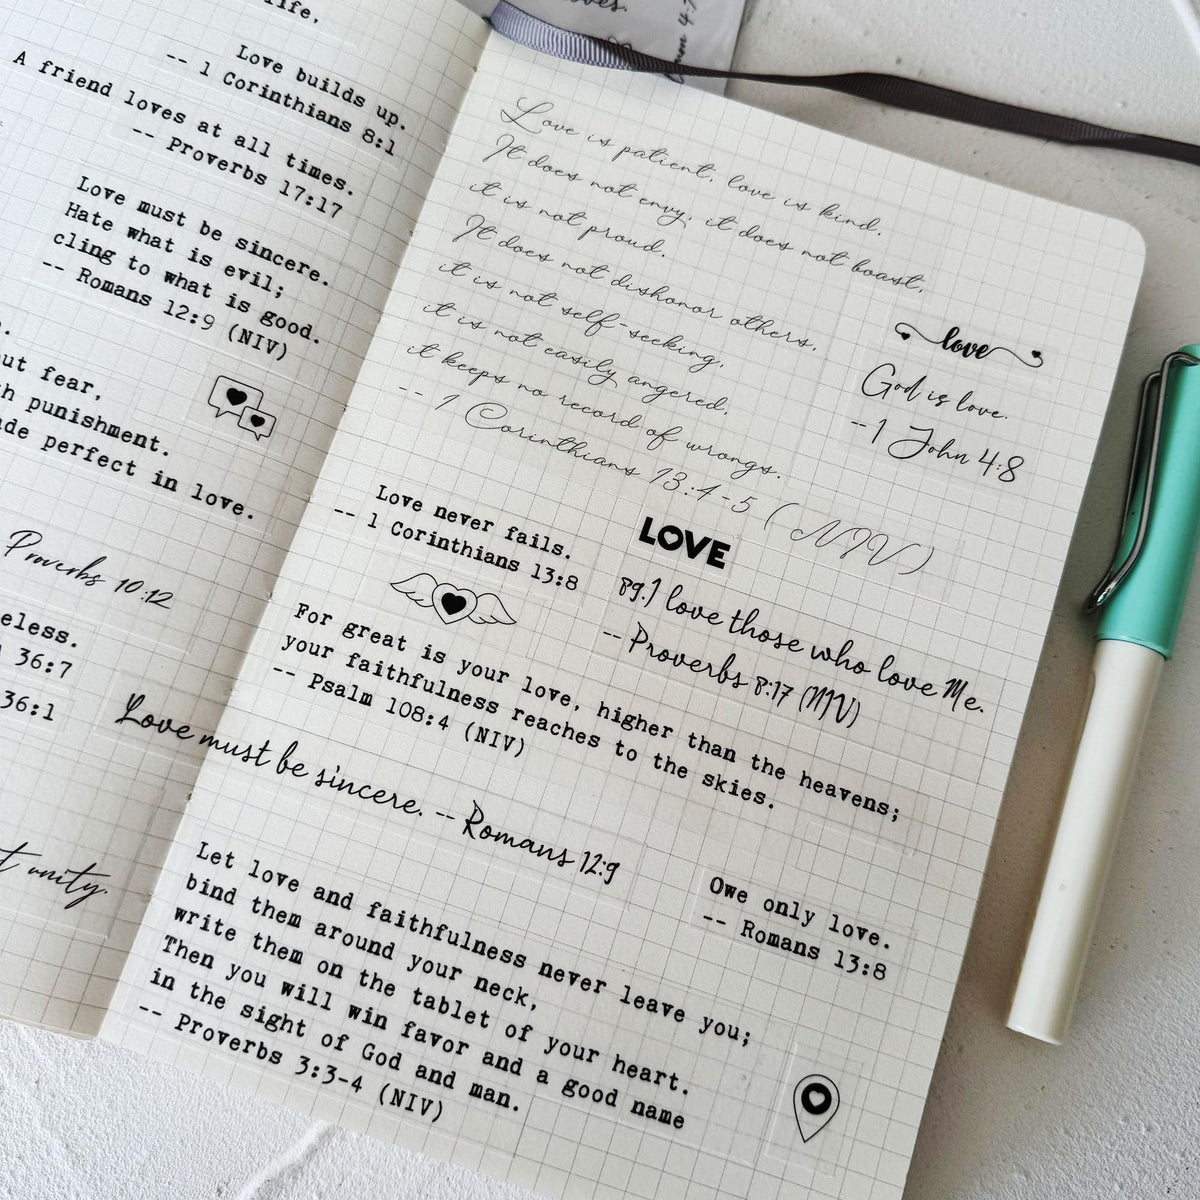 life.
Love builds up.
-- 1 Corinthians 8:1
A friend loves at all times.
-- Proverbs 17:17
Love must be sincere.
Hate what is evil;
cling to what is good.
-- Romans 12:9 (NIV)
fear,
punishment.
perfect in love.
Proverbs 10:12
36:7
36:1
unity.
4:7
Love is patient, love is kind.
It does not envy, it does not boast,
it is not proud.
It does not dishonor others,
it is not self-seeking,
it is not easily angered,
it keeps no record of wrongs.
-- 1 Corinthians 13:4-5 (NIV)
love
God is love.
--1 John 4:8
Love never fails.
-- 1 Corinthians 13:8
LOVE
89.I love those who love Me.
-- Proverbs 8:17 (NIV)
For great is your love, higher than the heavens;
your faithfulness reaches to the skies.
-- Psalm 108:4 (NIV)
Love must be sincere. -- Romans 12:9
Owe only love.
-- Romans 13:8
Let love and faithfulness never leave you;
bind them around your neck,
write them on the tablet of your heart.
Then you will win favor and a good name
in the sight of God and man.
-- Proverbs 3:3-4 (NIV)